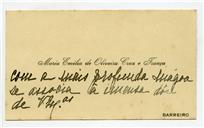 Maria Emilia de Oliveira Cruz e França
com a mais profunda mágoa
se associa à imensa dôr
de V.as
BARREIRO